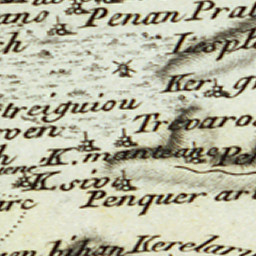 ano Penan Pral
ch Lespl
Ker g
treiguiou
ven Trevaro
h K. manteane Pe
K. sivo
arc Penquer ar
bihan Kerelaru